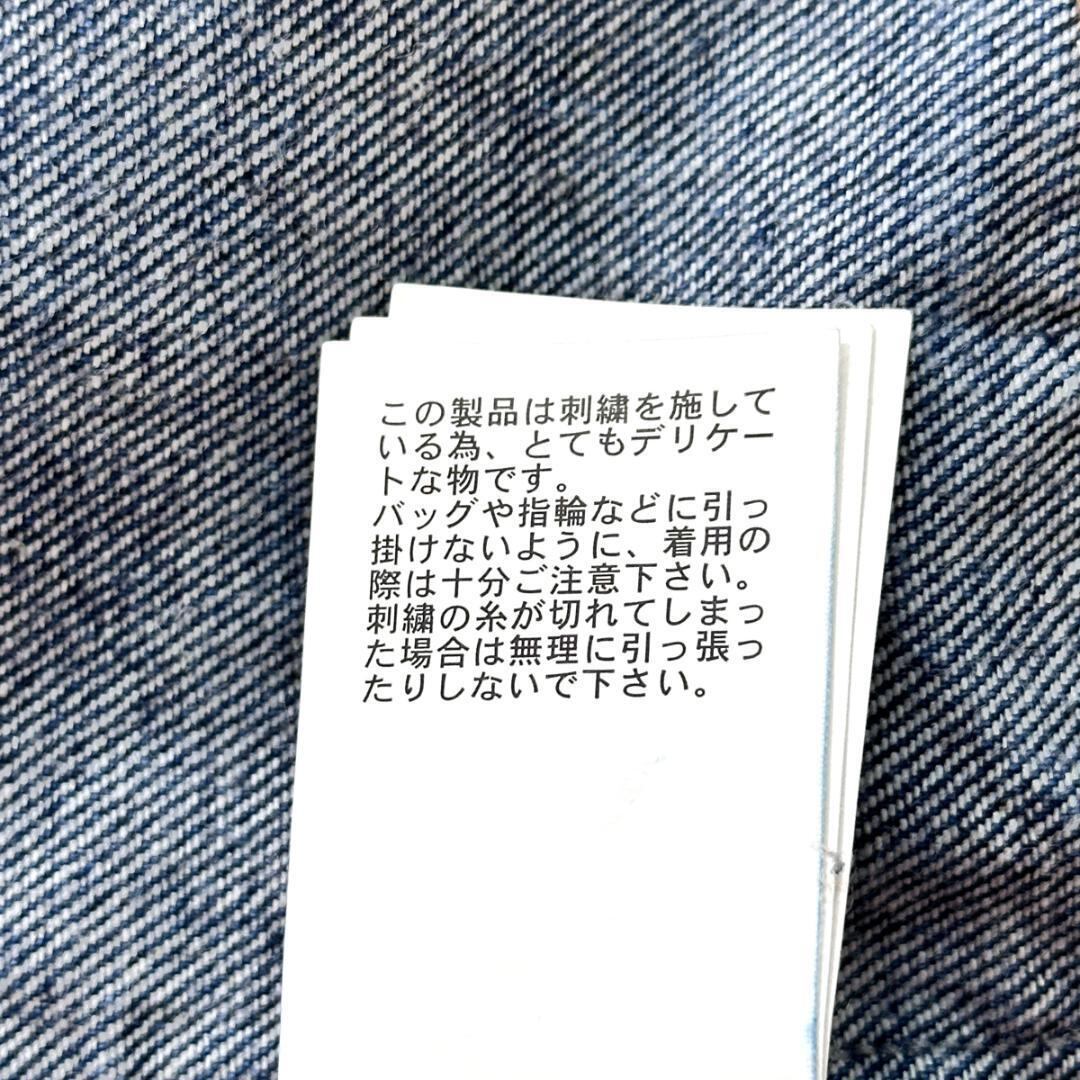 この製品は刺繍を施して
いる為、とてもデリケー
トな物です。
バッグや指輪などに引っ
掛けないように、着用の
際は十分ご注意下さい。
刺繍の糸が切れてしまっ
た場合は無理に引っ張っ
たりしないで下さい。